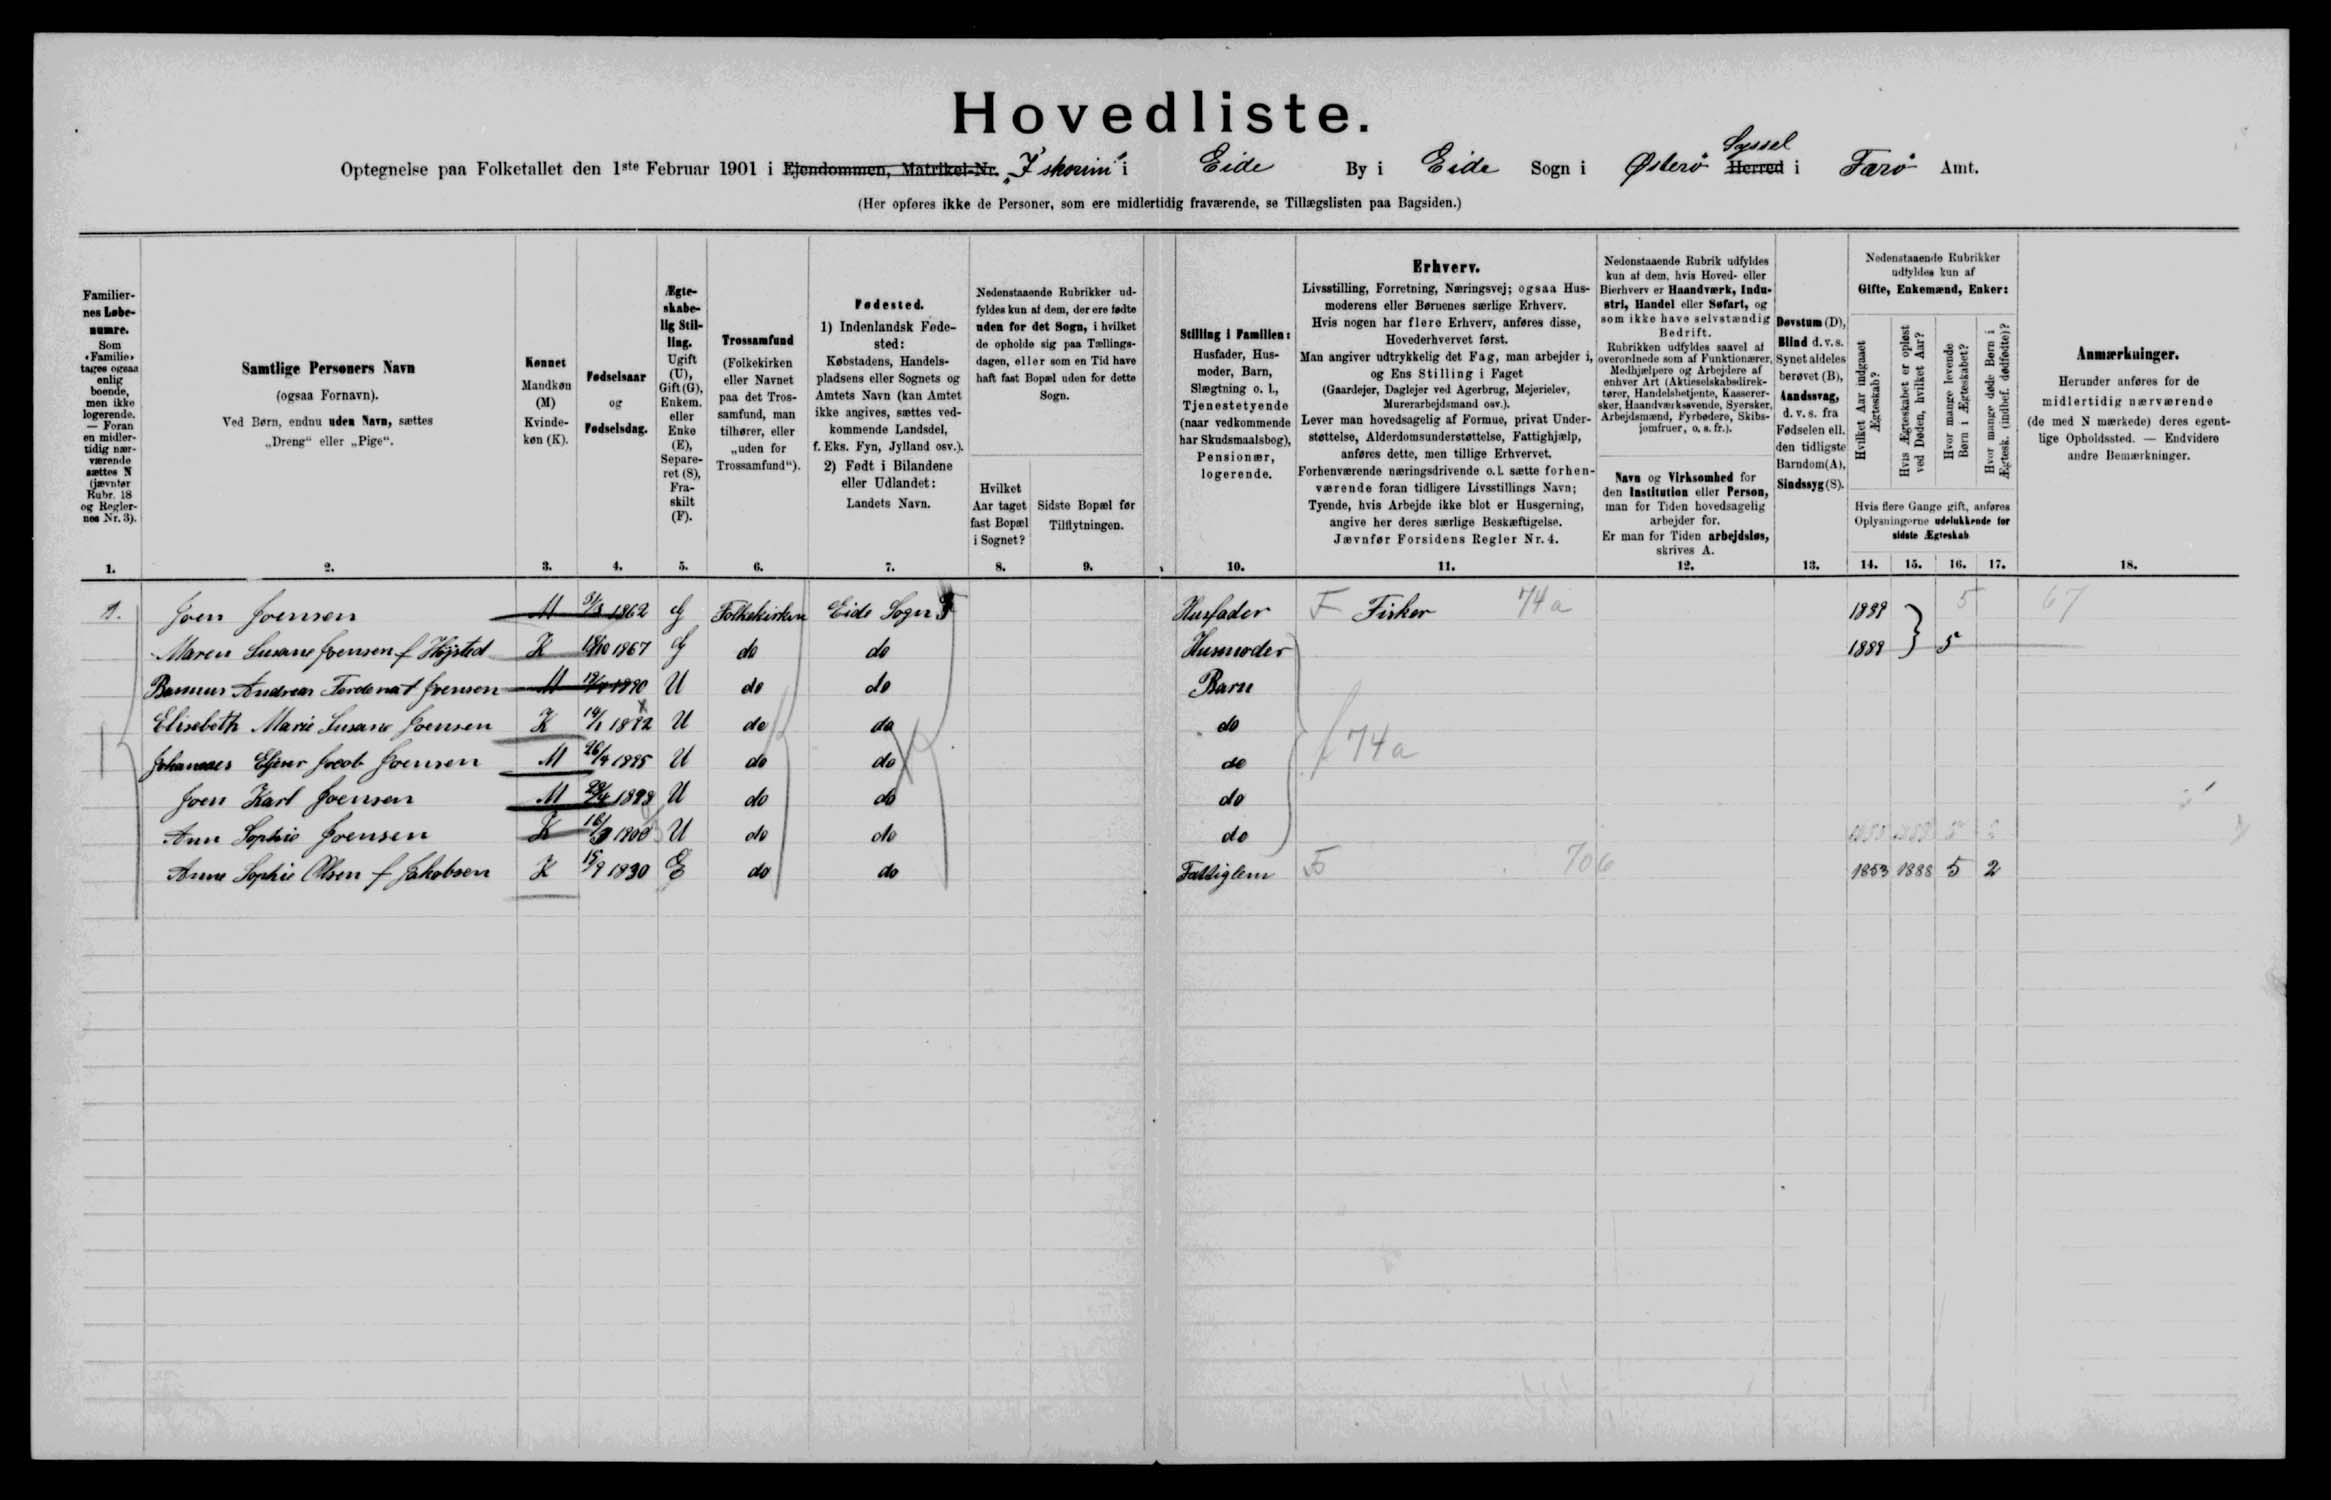 Hovedliste.
Optegnelse paa Folketallet den 1ste Februar 1901 i Ejendommen, Matrikel-Nr. „I skorini“ i Eide By i Eide Sogn i Østerø Herred Syssel i Færø Amt.
(Her opføres ikke de Personer, som ere midlertidig fraværende, se Tillægslisten paa Bagsiden.)
Familiernes Løbenumre.
Som «Familie» tages ogsaa enlig boende, men ikke logerende. — Foran en midlertidig nærværende sættes N (jævnfør Rubr. 18 og Reglernes Nr. 3).
1.
Samtlige Personers Navn
(ogsaa Fornavn).
Ved Børn, endnu uden Navn, sættes
„Dreng“ eller „Pige“.
2.
Kønnet
Mandkøn (M)
Kvindekøn (K).
3.
Fødselsaar
og
Fødselsdag.
4.
Ægteskabelig Stilling.
Ugift (U), Gift (G), Enkem. eller Enke (E), Separeret (S), Fraskilt (F).
5.
Trossamfund
(Folkekirken eller Navnet paa det Trossamfund, man tilhører, eller „uden for Trossamfund“).
6.
Fødested.
1) Indenlandsk Fødested:
Købstadens, Handelspladsens eller Sognets og Amtets Navn (kan Amtet ikke angives, sættes vedkommende Landsdel, f. Eks. Fyn, Jylland osv.).
2) Født i Bilandene eller Udlandet:
Landets Navn.
7.
Nedenstaaende Rubrikker udfyldes kun af dem, der ere fødte uden for det Sogn, i hvilket de opholde sig paa Tællingsdagen, eller som en Tid have haft fast Bopæl uden for dette Sogn.
Hvilket Aar taget fast Bopæl i Sognet?
8.
Sidste Bopæl før Tilflytningen.
9.
Stilling i Familien:
Husfader, Husmoder, Barn, Slægtning o. l., Tjenestetyende (naar vedkommende har Skudsmaalsbog), Pensionær, logerende.
10.
Erhverv.
Livsstilling, Forretning, Næringsvej; ogsaa Husmoderens eller Børnenes særlige Erhverv.
Hvis nogen har flere Erhverv, anføres disse, Hovederhvervet først.
Man angiver udtrykkelig det Fag, man arbejder i, og Ens Stilling i Faget
(Gaardejer, Daglejer ved Agerbrug, Mejerielev, Murerarbejdsmand osv.).
Lever man hovedsagelig af Formue, privat Understøttelse, Alderdomsunderstøttelse, Fattighjælp, anføres dette, men tillige Erhvervet.
Forhenværende næringsdrivende o. l. sætte forhenværende foran tidligere Livsstillings Navn;
Tyende, hvis Arbejde ikke blot er Husgerning, angive her deres særlige Beskæftigelse.
Jævnfør Forsidens Regler Nr. 4.
11.
Nedenstaaende Rubrik udfyldes kun af dem, hvis Hoved- eller Bierhverv er Haandværk, Industri, Handel eller Søfart, og som ikke have selvstændig Bedrift.
Rubrikken udfyldes saavel af overordnede som af Funktionærer, Medhjælpere og Arbejdere af enhver Art (Aktieselskabsdirektører, Handelsbetjente, Kasserersker, Haandværkssvende, Syersker, Arbejdsmænd, Fyrbødere, Skibsjomfruer, o. s. fr.).
Navn og Virksomhed for den Institution eller Person, man for Tiden hovedsagelig arbejder for.
Er man for Tiden arbejdsløs, skrives A.
12.
Døvstum (D), Blind d. v. s. Synet aldeles berøvet (B), Aandssvag, d. v. s. fra Fødselen ell. den tidligste Barndom (A), Sindssyg (S).
13.
Nedenstaaende Rubrikker udfyldes kun af
Gifte, Enkemænd, Enker:
Hvilket Aar indgaaet Ægteskab?
Hvis Ægteskabet er opløst ved Døden, hvilket Aar?
Hvor mange levende Børn i Ægteskabet?
Hvor mange døde Børn i Ægtesk. (indbef. dødfødte)?
Hvis flere Gange gift, anføres Oplysningerne udelukkende for sidste Ægteskab
14. 15. 16. 17.
Anmærkninger.
Herunder anføres for de midlertidig nærværende (de med N mærkede) deres egentlige Opholdssted. — Endvidere andre Bemærkninger.
18.
1. Joen Joensen M 31/3 1862 G Folkekirken Eide Sogn F Husfader F Fisker 74a 1889 5 67
Maren Susane Joensen f Højsted K 18/10 1867 G do do Husmoder 1889 5
Rasmus Andreas Ferdenat Joensen M U do do Barn
Elisebeth Marie Susane Joensen K 14/1 1892 U do do do
Johannes Ejner Jacob Joensen M 26/4 1895 U do do do 74a
Joen Karl Joensen M 1898 U do do do
Ann Sophie Joensen K 1900 U do do do
Anne Sophie Olsen f Jakobsen K 15/9 1830 E do do Fattiglem F 706 1853 1888 5 2